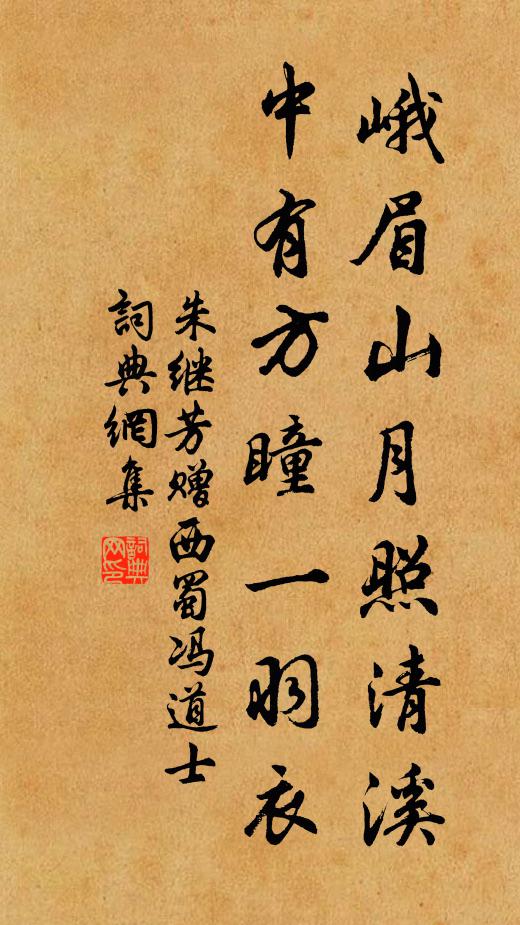 峨眉山月照清溪
中有方瞳一羽衣
朱继芳赠西蜀冯道士
詞典網集
詞典
网印